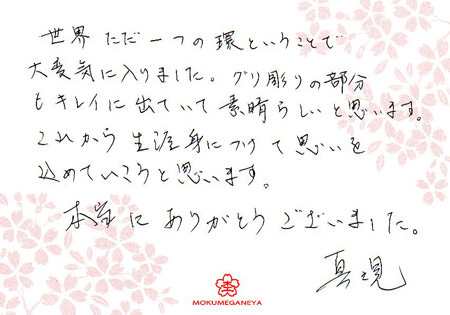 世界 ただ一つの環ということで
大変気に入りました。グリ彫りの部分
もキレイに出ていて素晴らしいと思います。
これから生涯身につけて思いを
込めていこうと思います。
本当にありがとうございました。
真現
MOKUMEGANEYA